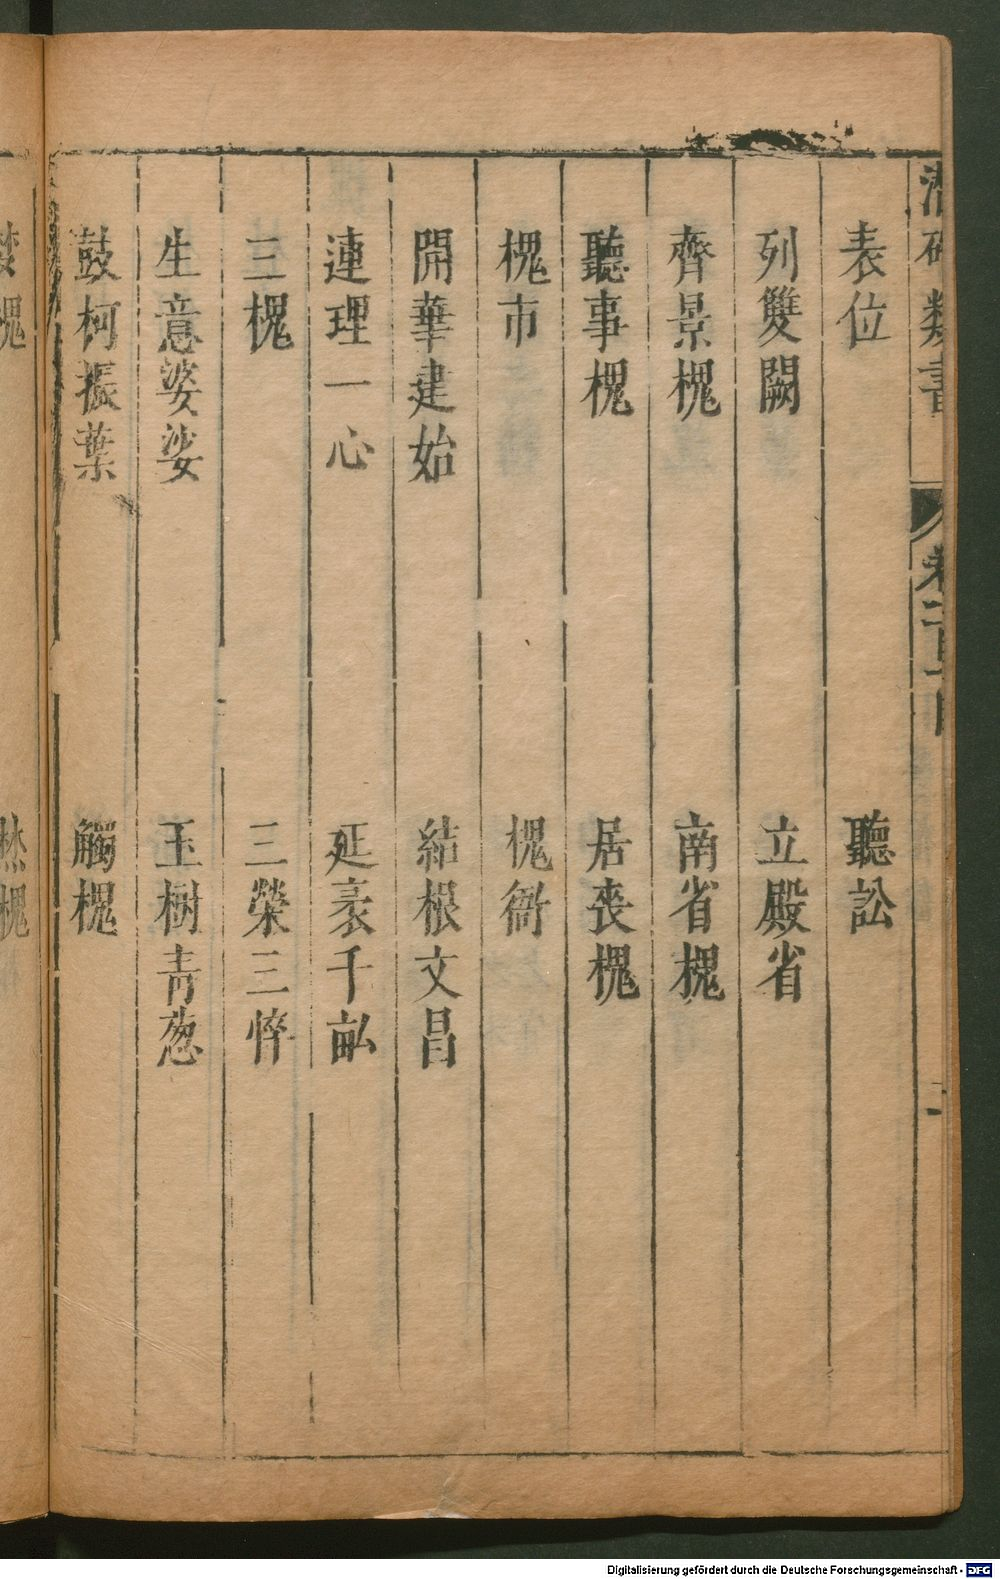 潛確類書
卷二百一目
二
表位　聽訟
列雙闕　立殿省
齊景槐　南省槐
聽事槐　居喪槐
槐市　槐衙
開華建始　結根文昌
連理一心　延袤千畝
三槐　三榮三悴
生意婆娑　玉樹青葱
鼓柯振葉　觸槐
槐　槐
Digitalisierung gefördert durch die Deutsche Forschungsgemeinschaft - DFG